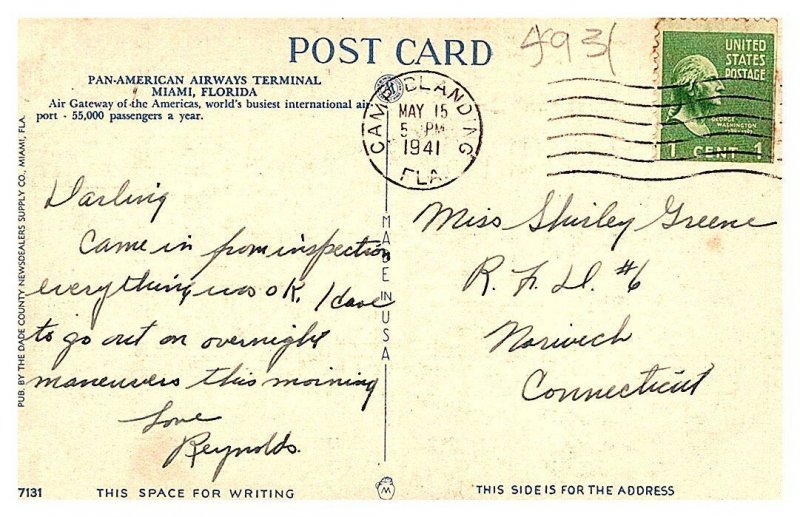 POST CARD
4931
PAN-AMERICAN AIRWAYS TERMINAL
MIAMI, FLORIDA
Air Gateway of the Americas, world's busiest international air-
port - 55,000 passengers a year.
CAMP BLANDING
MAY 15
5 PM
1941
FLA.
UNITED
STATES
POSTAGE
GEORGE
WASHINGTON
1 CENT 1
PUB. BY THE DADE COUNTY NEWSDEALERS SUPPLY CO., MIAMI, FLA.
Darling
Came in from inspection
everything was o K. I have
to go out on overnight
maneuvers this morning
Love
Reynolds.
MADE IN USA
Miss Shirley Greene
R. F. D. #6
Norwich
Connecticut
7131
THIS SPACE FOR WRITING
M
THIS SIDE IS FOR THE ADDRESS